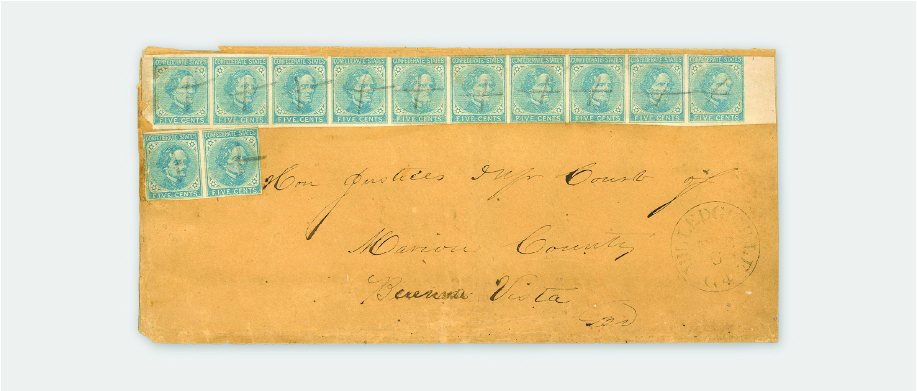 CONFEDERATE STATES CONFEDERATE STATES CONFEDERATE STATES CONFEDERATE STATES CONFEDERATE STATES CONFEDERATE STATES CONFEDERATE STATES CONFEDERATE STATES CONFEDERATE STATES CONFEDERATE STATES
FIVE CENTS FIVE CENTS FIVE CENTS FIVE CENTS FIVE CENTS FIVE CENTS FIVE CENTS FIVE CENTS FIVE CENTS FIVE CENTS
CONFEDERATE STATES CONFEDERATE STATES
FIVE CENTS FIVE CENTS
Hon Justices Court of
Marion County
Buena Vista